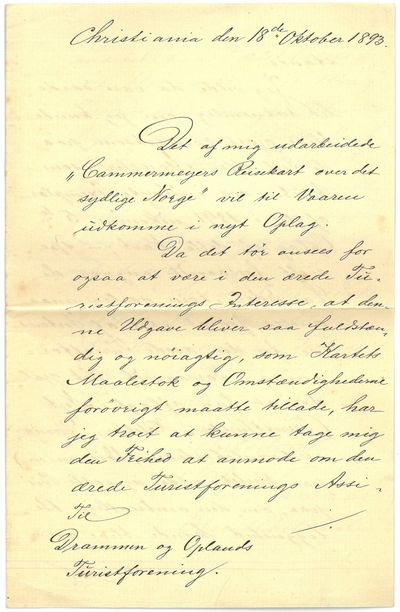 Christiania den 18de Oktober 1893.
Det af mig udarbeidede
„Cammermeyers Reisekart over det
sydlige Norge" vil til Vaaren
udkomme i nyt Oplag.
Da det tör ansees for
ogsaa at være i den ærede Tu-
ristforenings Interesse, at den-
ne Udgave bliver saa fuldstæn-
dig og nöiagtig, som Kartets
Maalestok og Omstændighederne
forövrigt maatte tillade, har
jeg troet at kunne tage mig
den Frihed at anmode om den
ærede Turistforenings Assi-
Til
Drammen og Oplands
Turistforening.